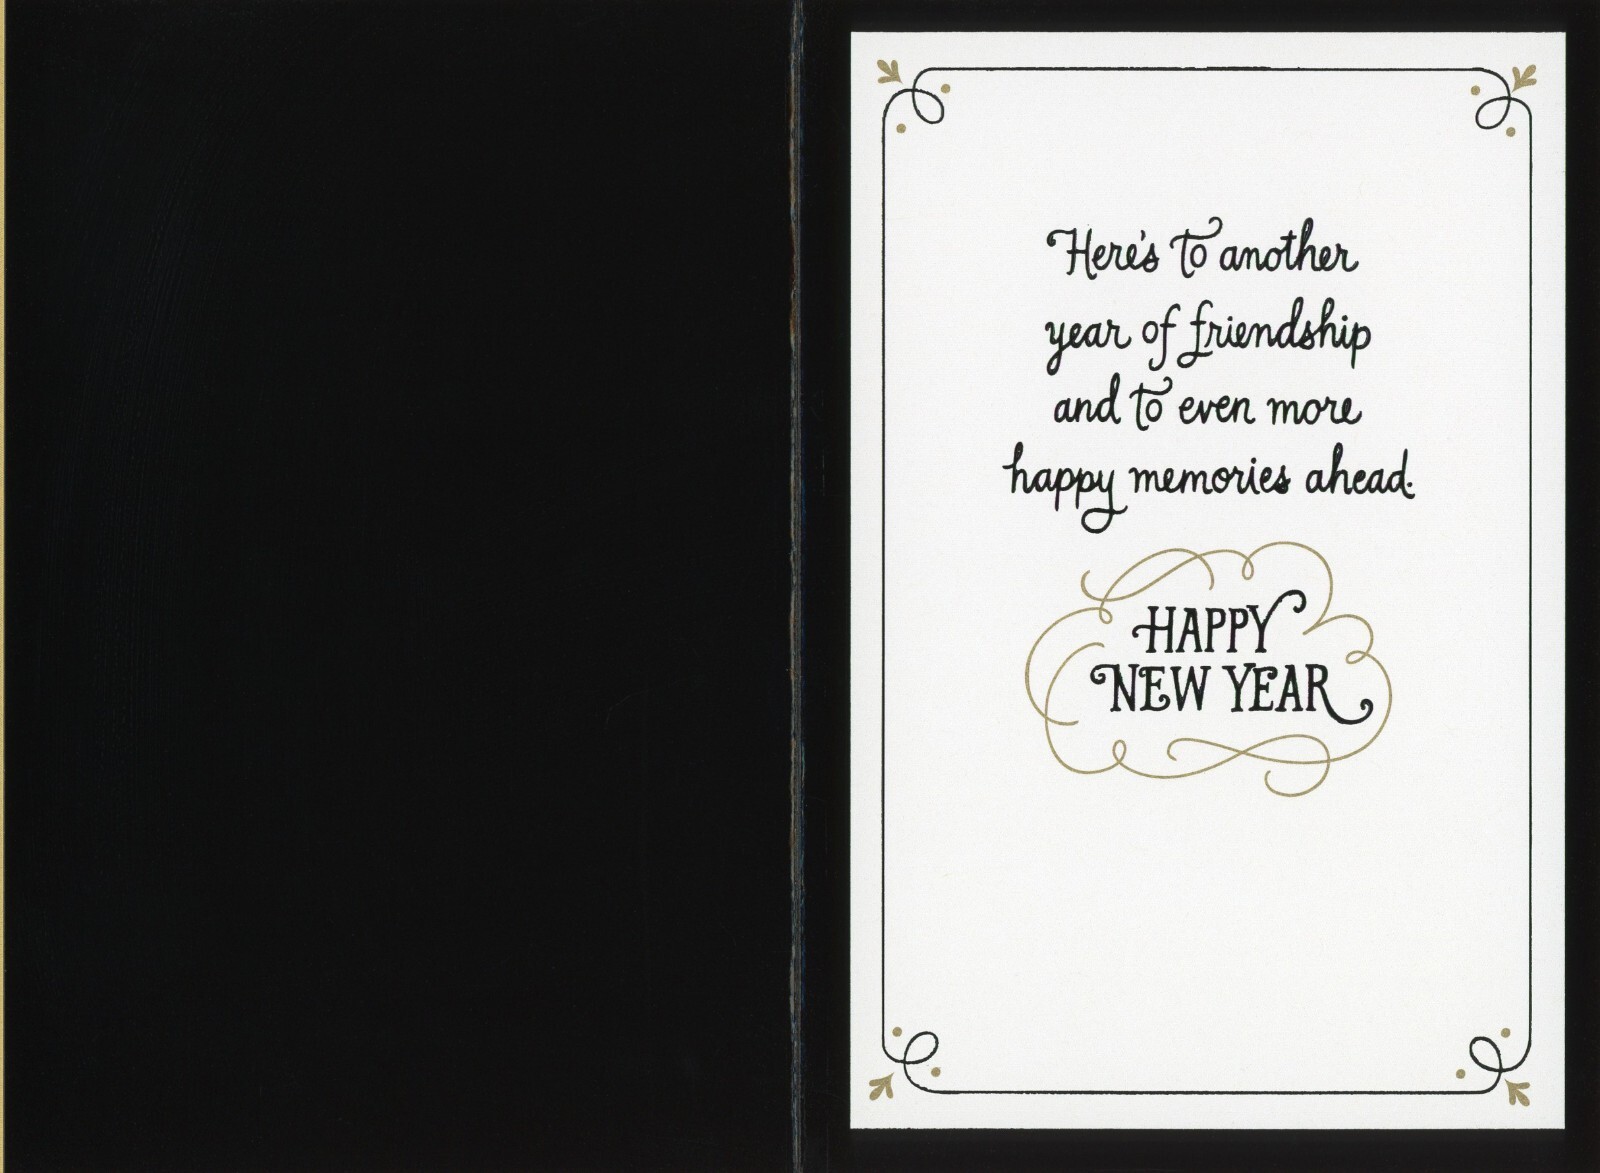 Here's to another
year of friendship
and to even more
happy memories ahead.
HAPPY
NEW YEAR